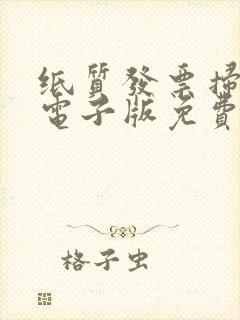 纸質發票掃
電子版免費
格子虫